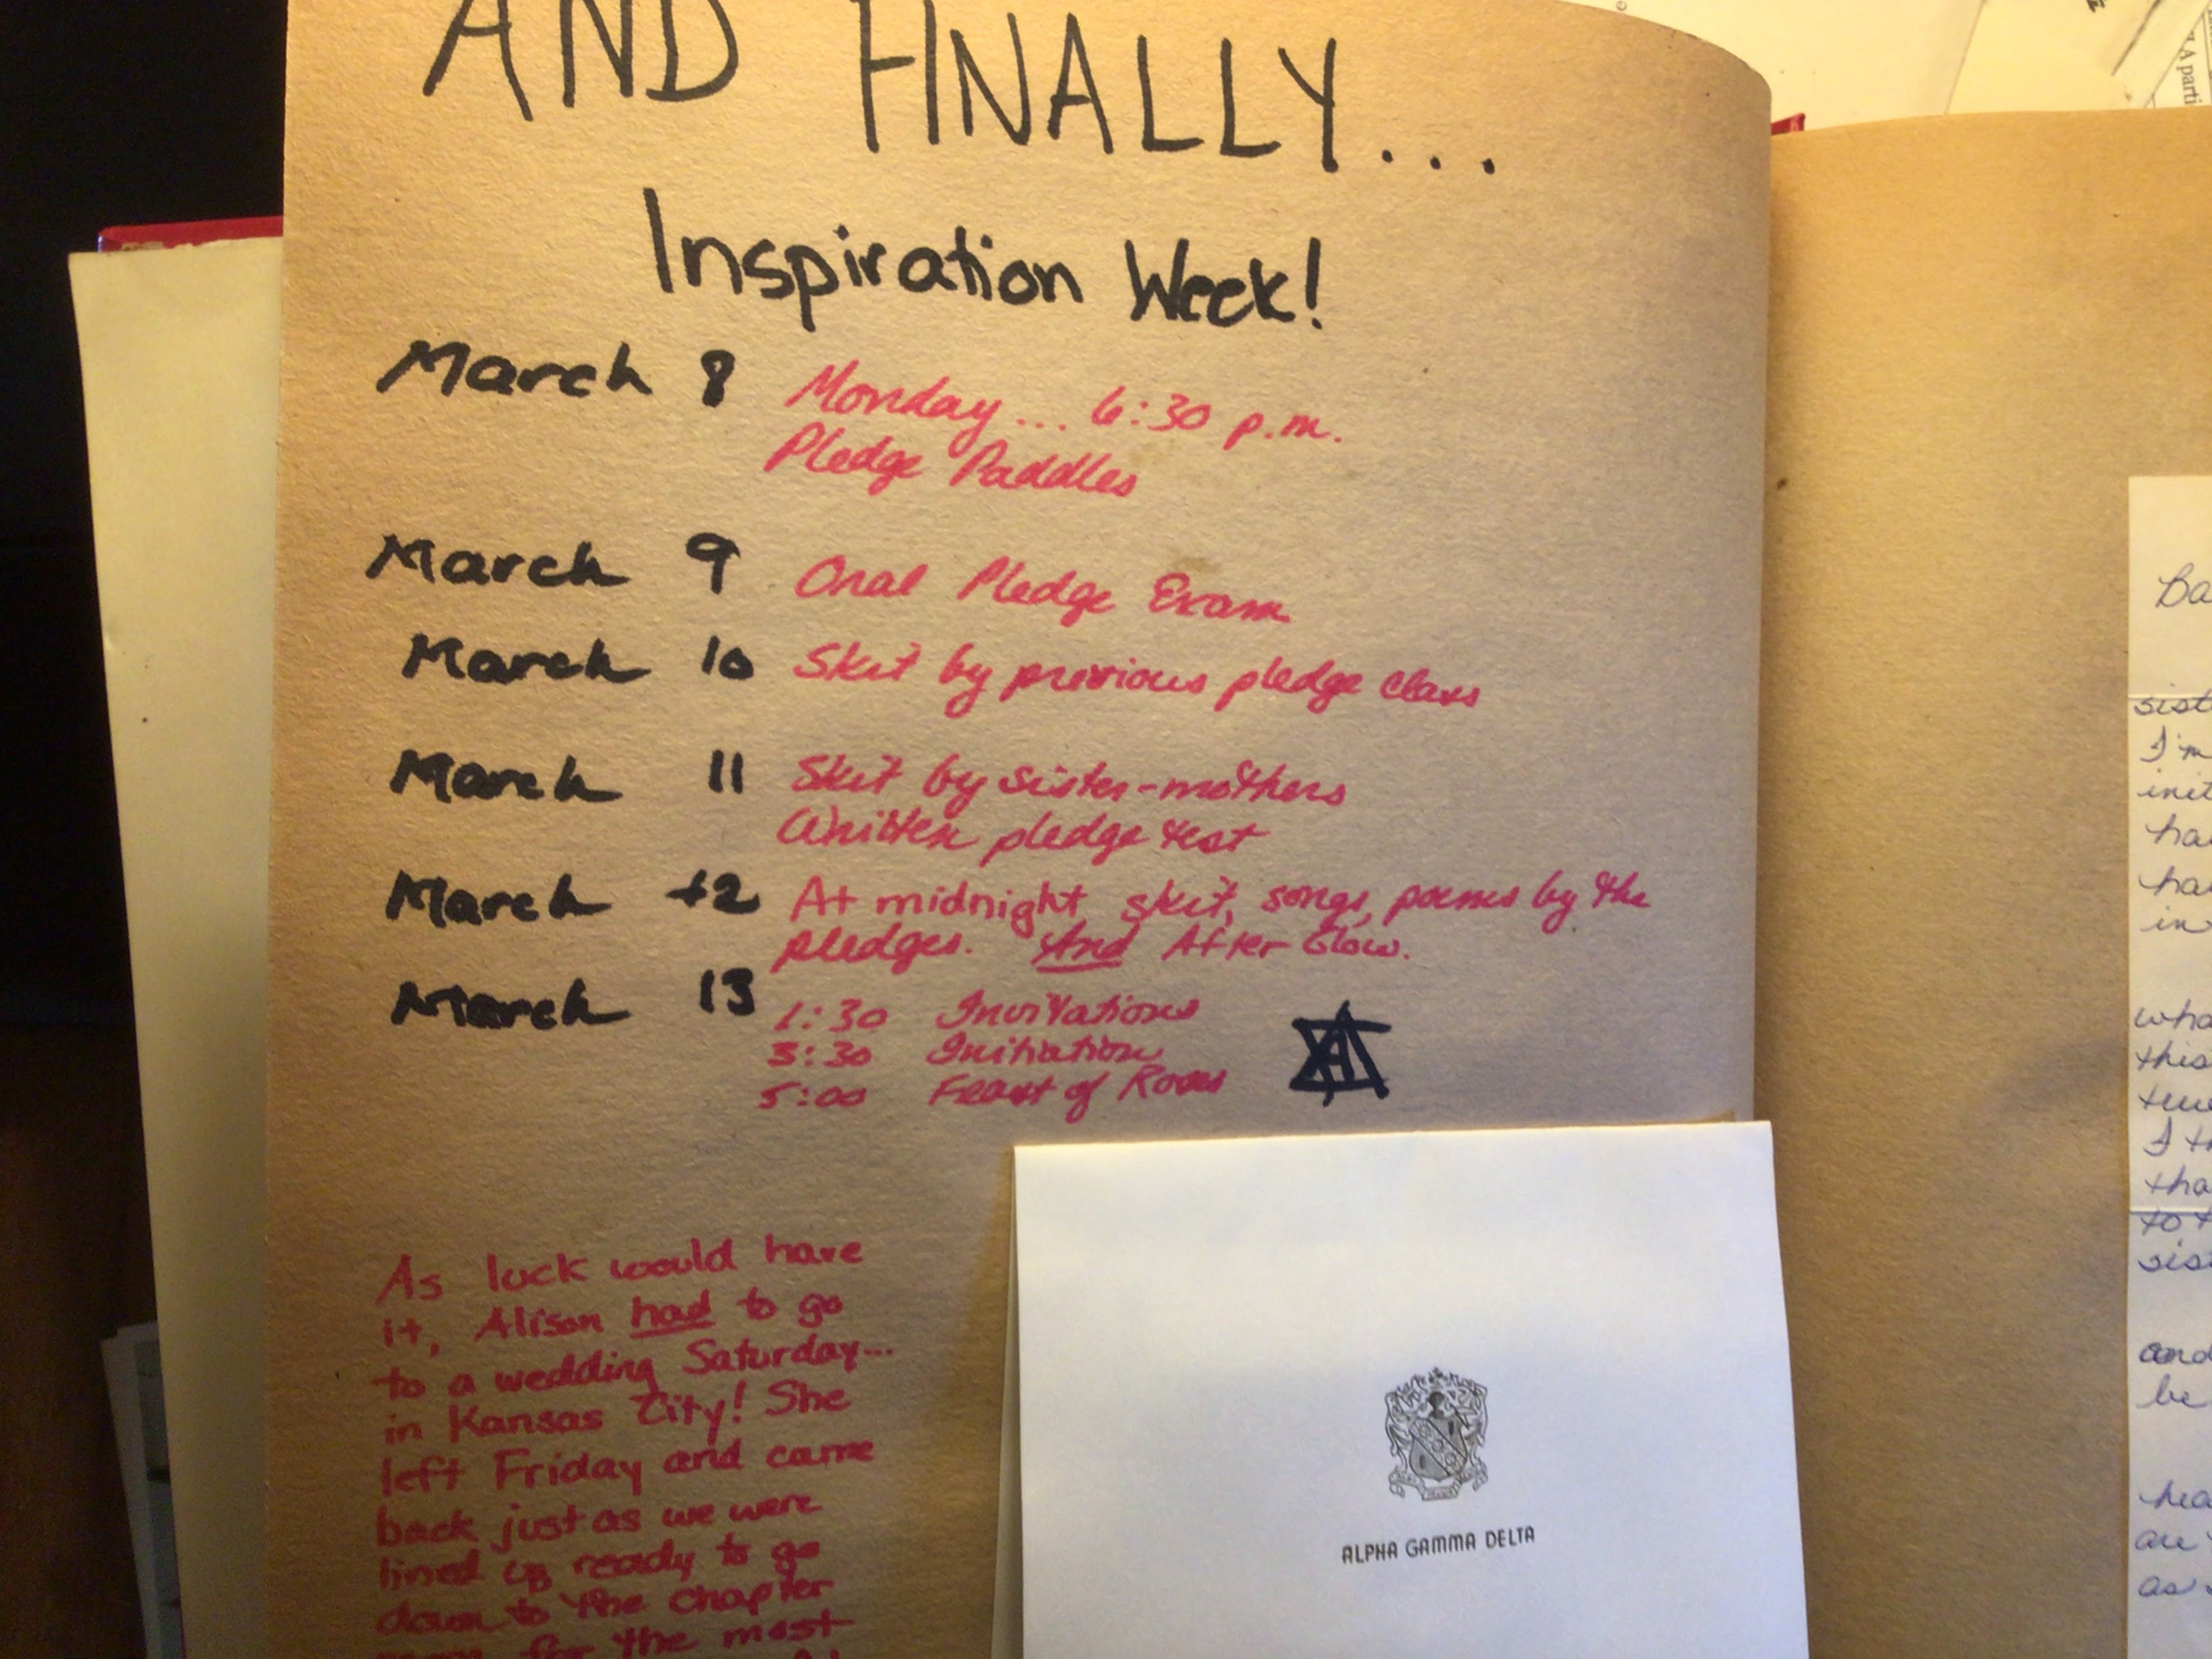 AND FINALLY...
Inspiration Week!
March 8 Monday... 6:30 p.m.
Pledge Paddles
March 9 Oral Pledge Exam
March 10 Skit by previous pledge class
March 11 Skit by sister-mothers
Written pledge test
March 12 At midnight skit, songs, poems by the
pledges. And After Glow.
March 13 1:30 Invitations
3:30 Initiation
5:00 Feast of Roses
As luck would have
it, Alison had to go
to a wedding Saturday...
in Kansas City! She
left Friday and came
back just as we were
lined up ready to go
down to the chapter
for the most
ALPHA GAMMA DELTA
Ba
sist
I'm
init
ha
ha
in
who
this
I th
tha
to t
sis
and
be
hea
are
as
A parti